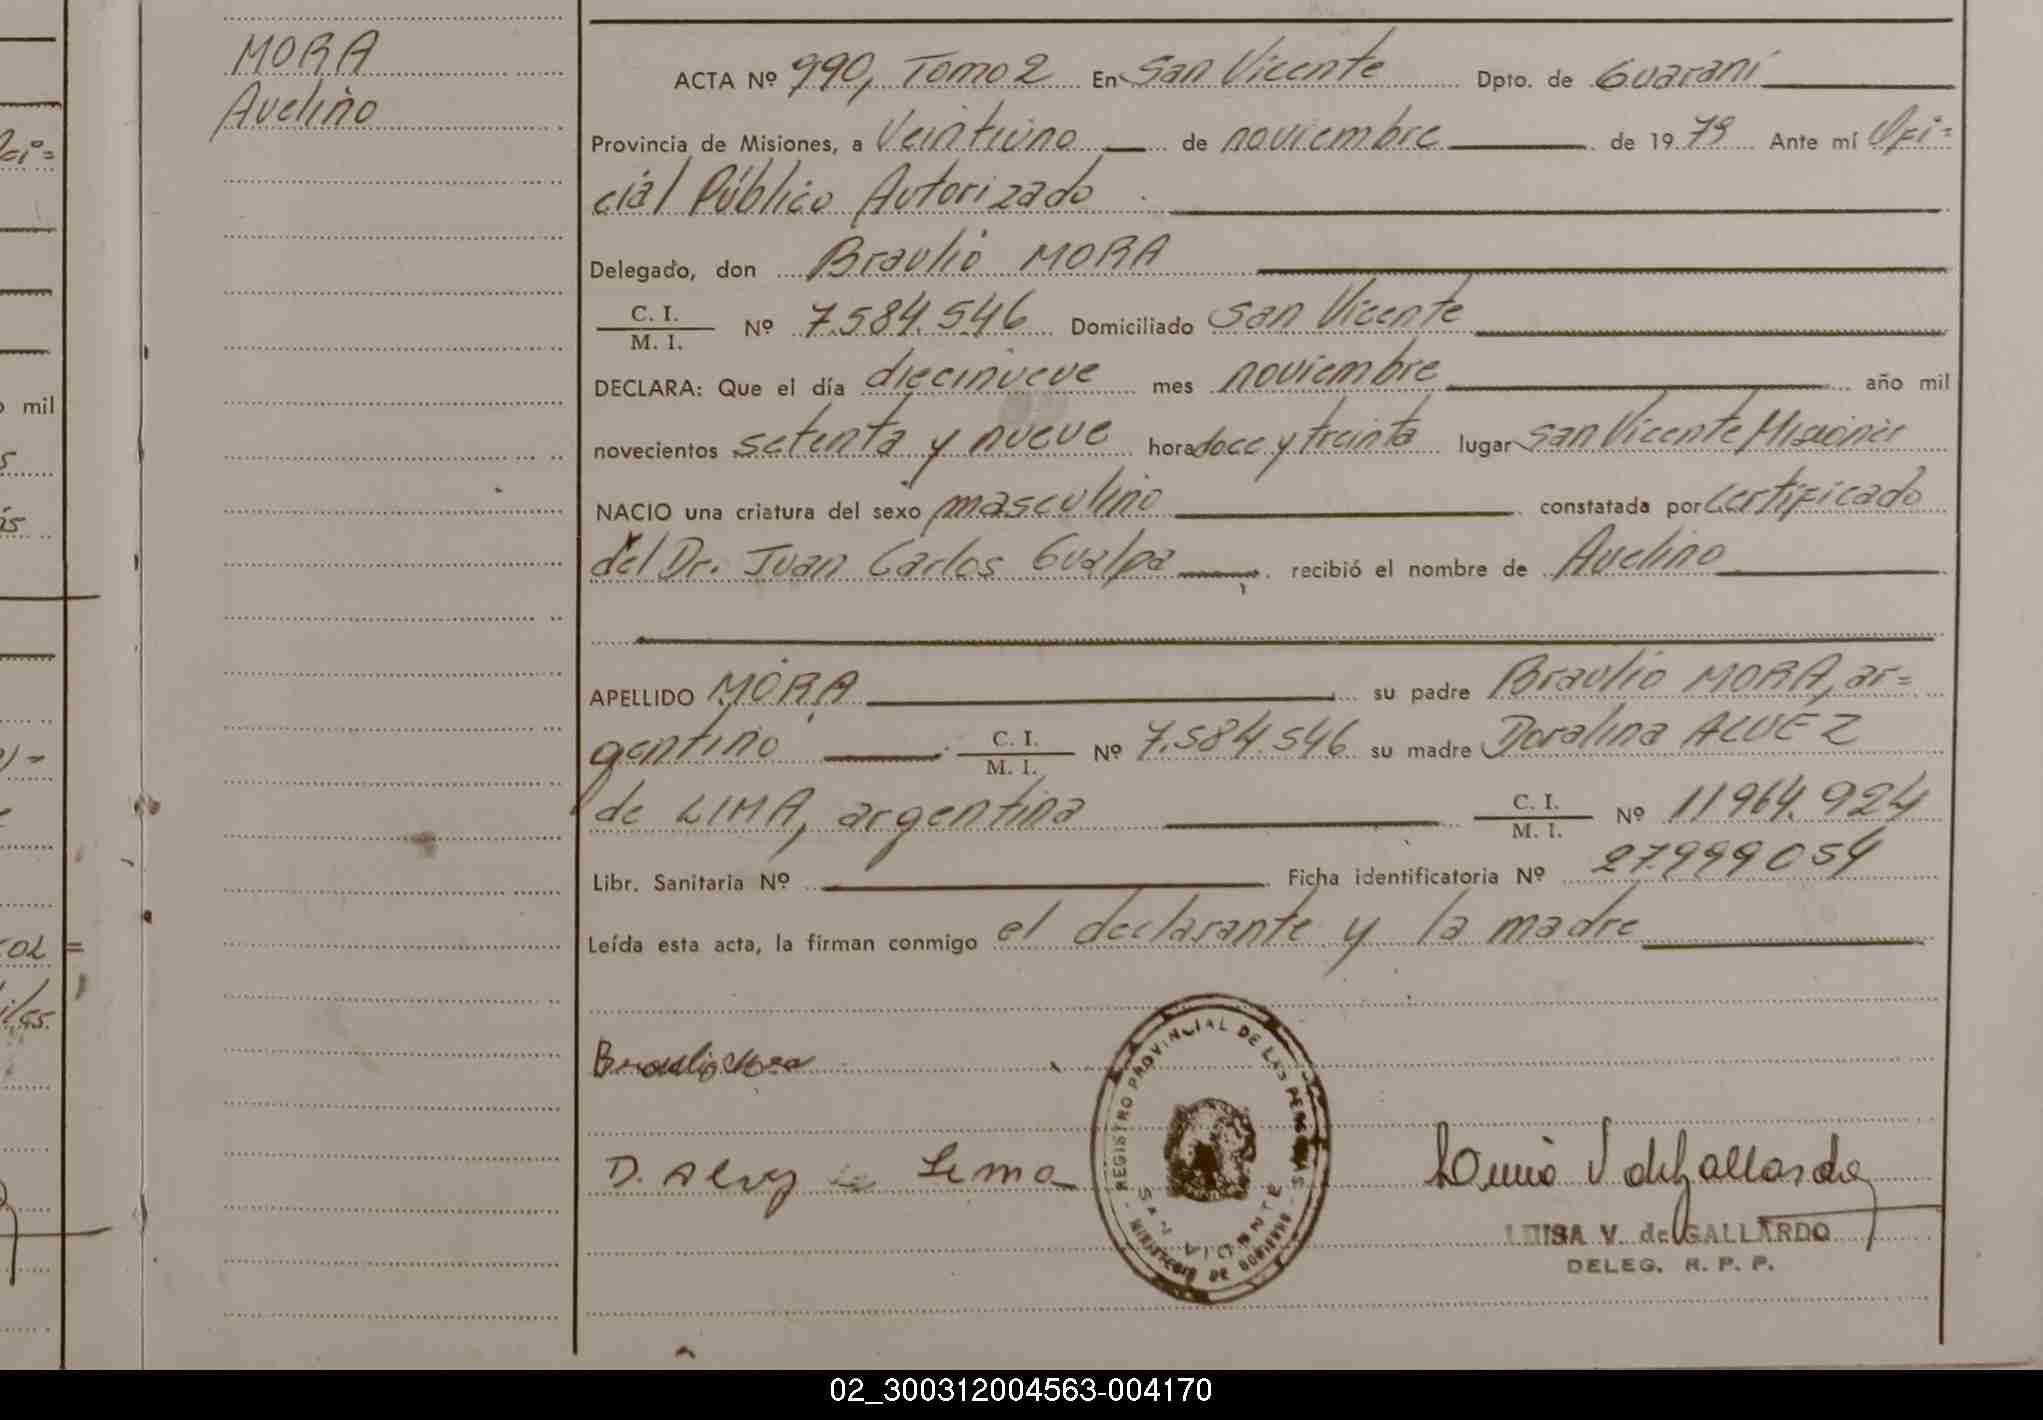 MORA
Avelino
ACTA Nº 990, Tomo 2 En San Vicente Dpto. de Guaraní
Provincia de Misiones, a Veintiuno de noviembre de 19 79 Ante mí Ofi=
cial Público Autorizado
Delegado, don Braulio MORA
C. I. / M. I. Nº 7.584.546 Domiciliado San Vicente
DECLARA: Que el día diecinueve mes noviembre año mil
novecientos setenta y nueve hora doce y treinta lugar San Vicente Misiones
NACIO una criatura del sexo masculino constatada por certificado
del Dr. Juan Carlos Gualpa recibió el nombre de Avelino
APELLIDO MORA su padre Braulio MORA, ar=
gentino C. I. / M. I. Nº 7.584.546 su madre Doralina ALVEZ
de LIMA, argentina C. I. / M. I. Nº 11964.924
Libr. Sanitaria Nº Ficha identificatoria Nº 27.999054
Leída esta acta, la firman conmigo el declarante y la madre
Braulio Mora
D. Alvez de Lima
REGISTRO PROVINCIAL DE LAS PERSONAS
SAN VICENTE
MINISTERIO DE GOBIERNO
LUISA V. de GALLARDO
DELEG. R. P. P.
mil
02_300312004563-004170